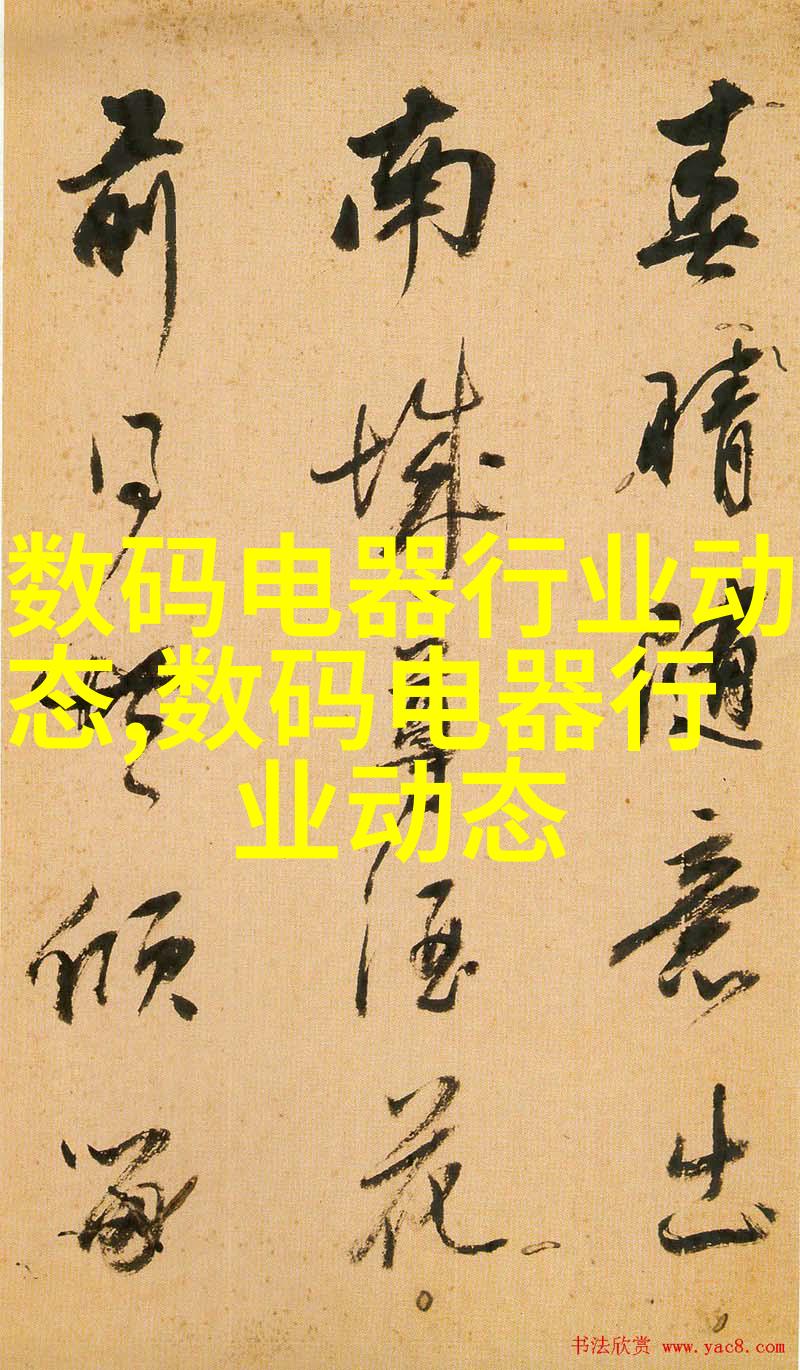 春晴随意出
南城尊酒花
前同倾
数码电器行业动
态,数码电器行
业动态
书法欣赏 www.yac8.com